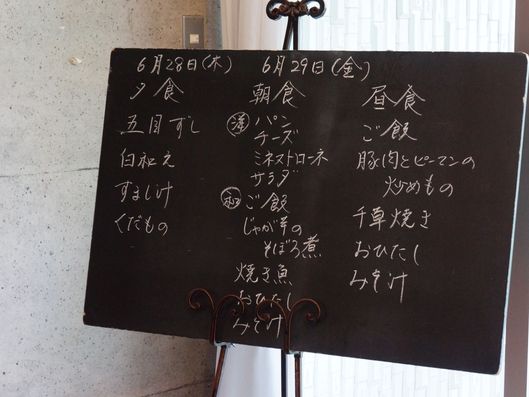 6月28日(木)
夕食
五目ずし
白和え
すまし汁
くだもの
6月29日(金)
朝食
洋 パン
チーズ
ミネストローネ
サラダ
和 ご飯
じゃが芋の
そぼろ煮
焼き魚
おひたし
みそ汁
昼食
ご飯
豚肉とピーマンの
炒めもの
千草焼き
おひたし
みそ汁